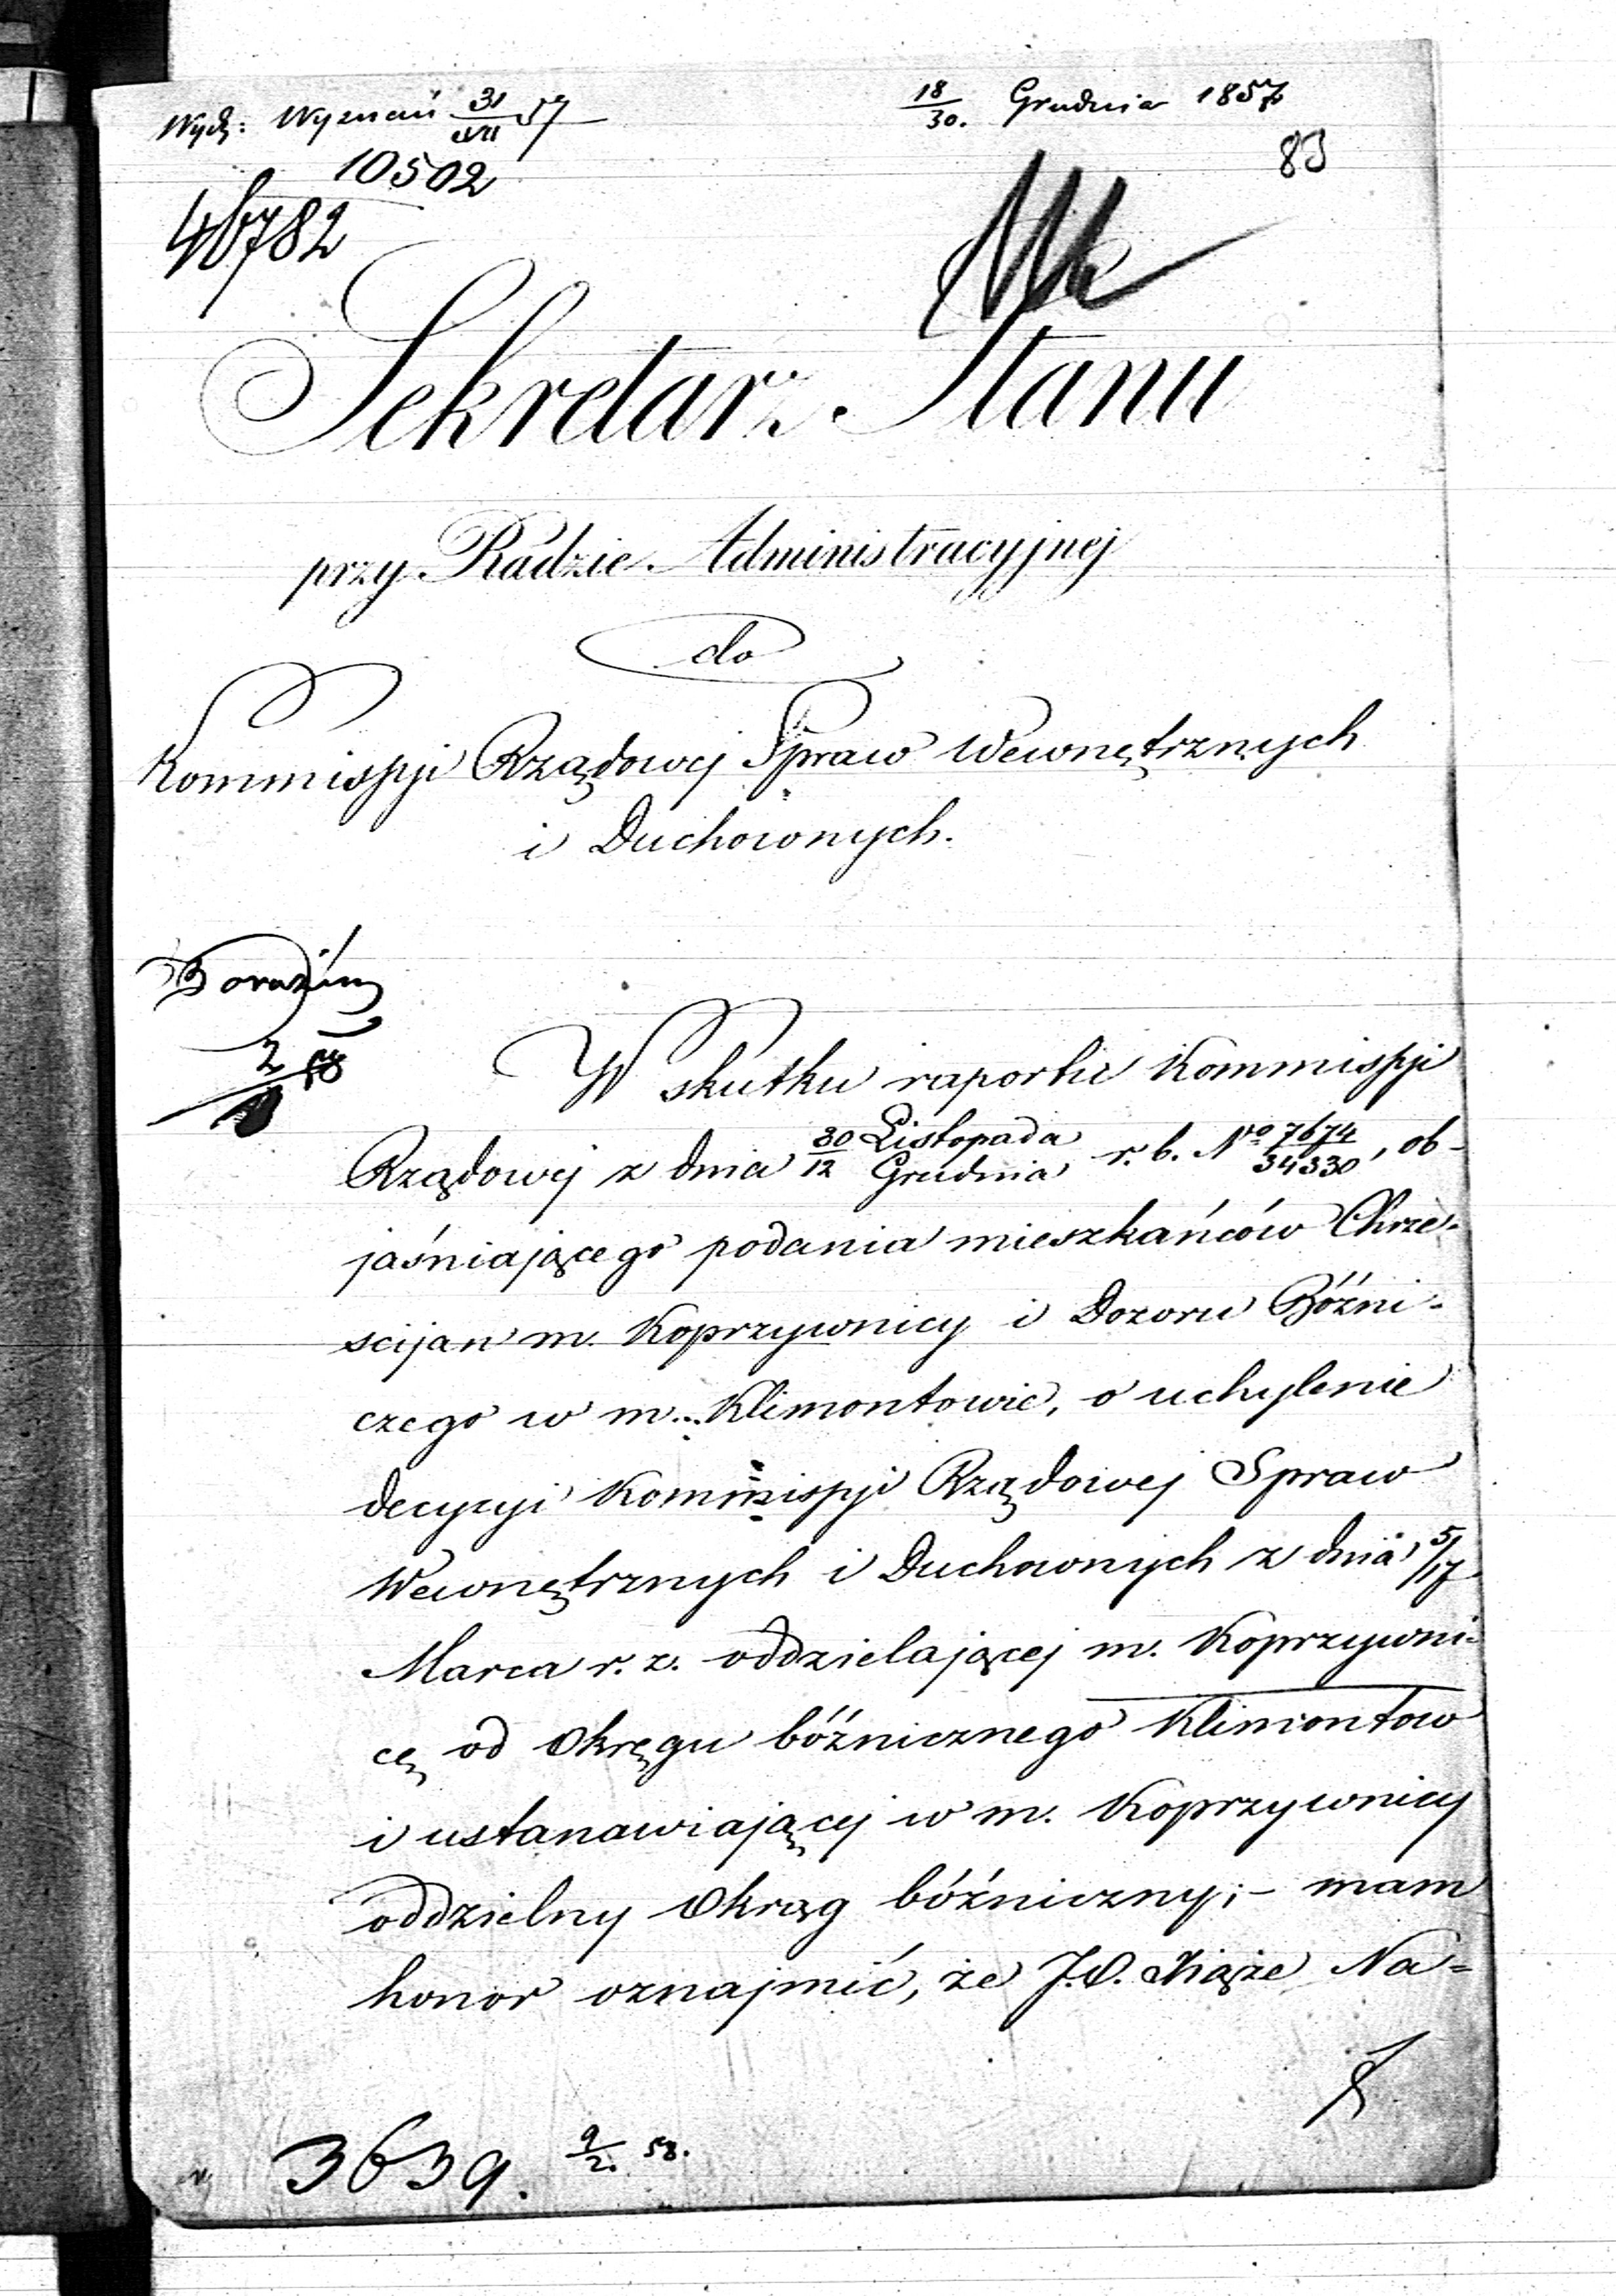 Wydz: Wyznań 31/XII 57
18/30. Grudnia 1857
83
10502
46782
Sekretarz Stanu
przy Radzie Administracyjnej
do
Kommissyi Rządowej Spraw Wewnętrznych
i Duchownych.
2
58
W skutku raportu Kommissyi
Rządowej z dnia 30 Listopada / 12 Grudnia r. b. No 7674/34330, ob-
jaśniającego podania mieszkańców Chrze-
scijan m. Koprzywnicy i Dozoru Bóźni-
czego w m. Klimontowie, o uchylenie
decyzyi Kommissyi Rządowej Spraw
Wewnętrznych i Duchownych z dnia 5/17
Marca r. z. oddzielającej m. Koprzywni-
cę od Okręgu bóźnicznego Klimontow
i ustanawiającej w m. Koprzywnicy
oddzielny Okrąg bóźniczny; - mam
honor oznajmić, że J.O. Xiąże Na=
3639. 9/2. 58.